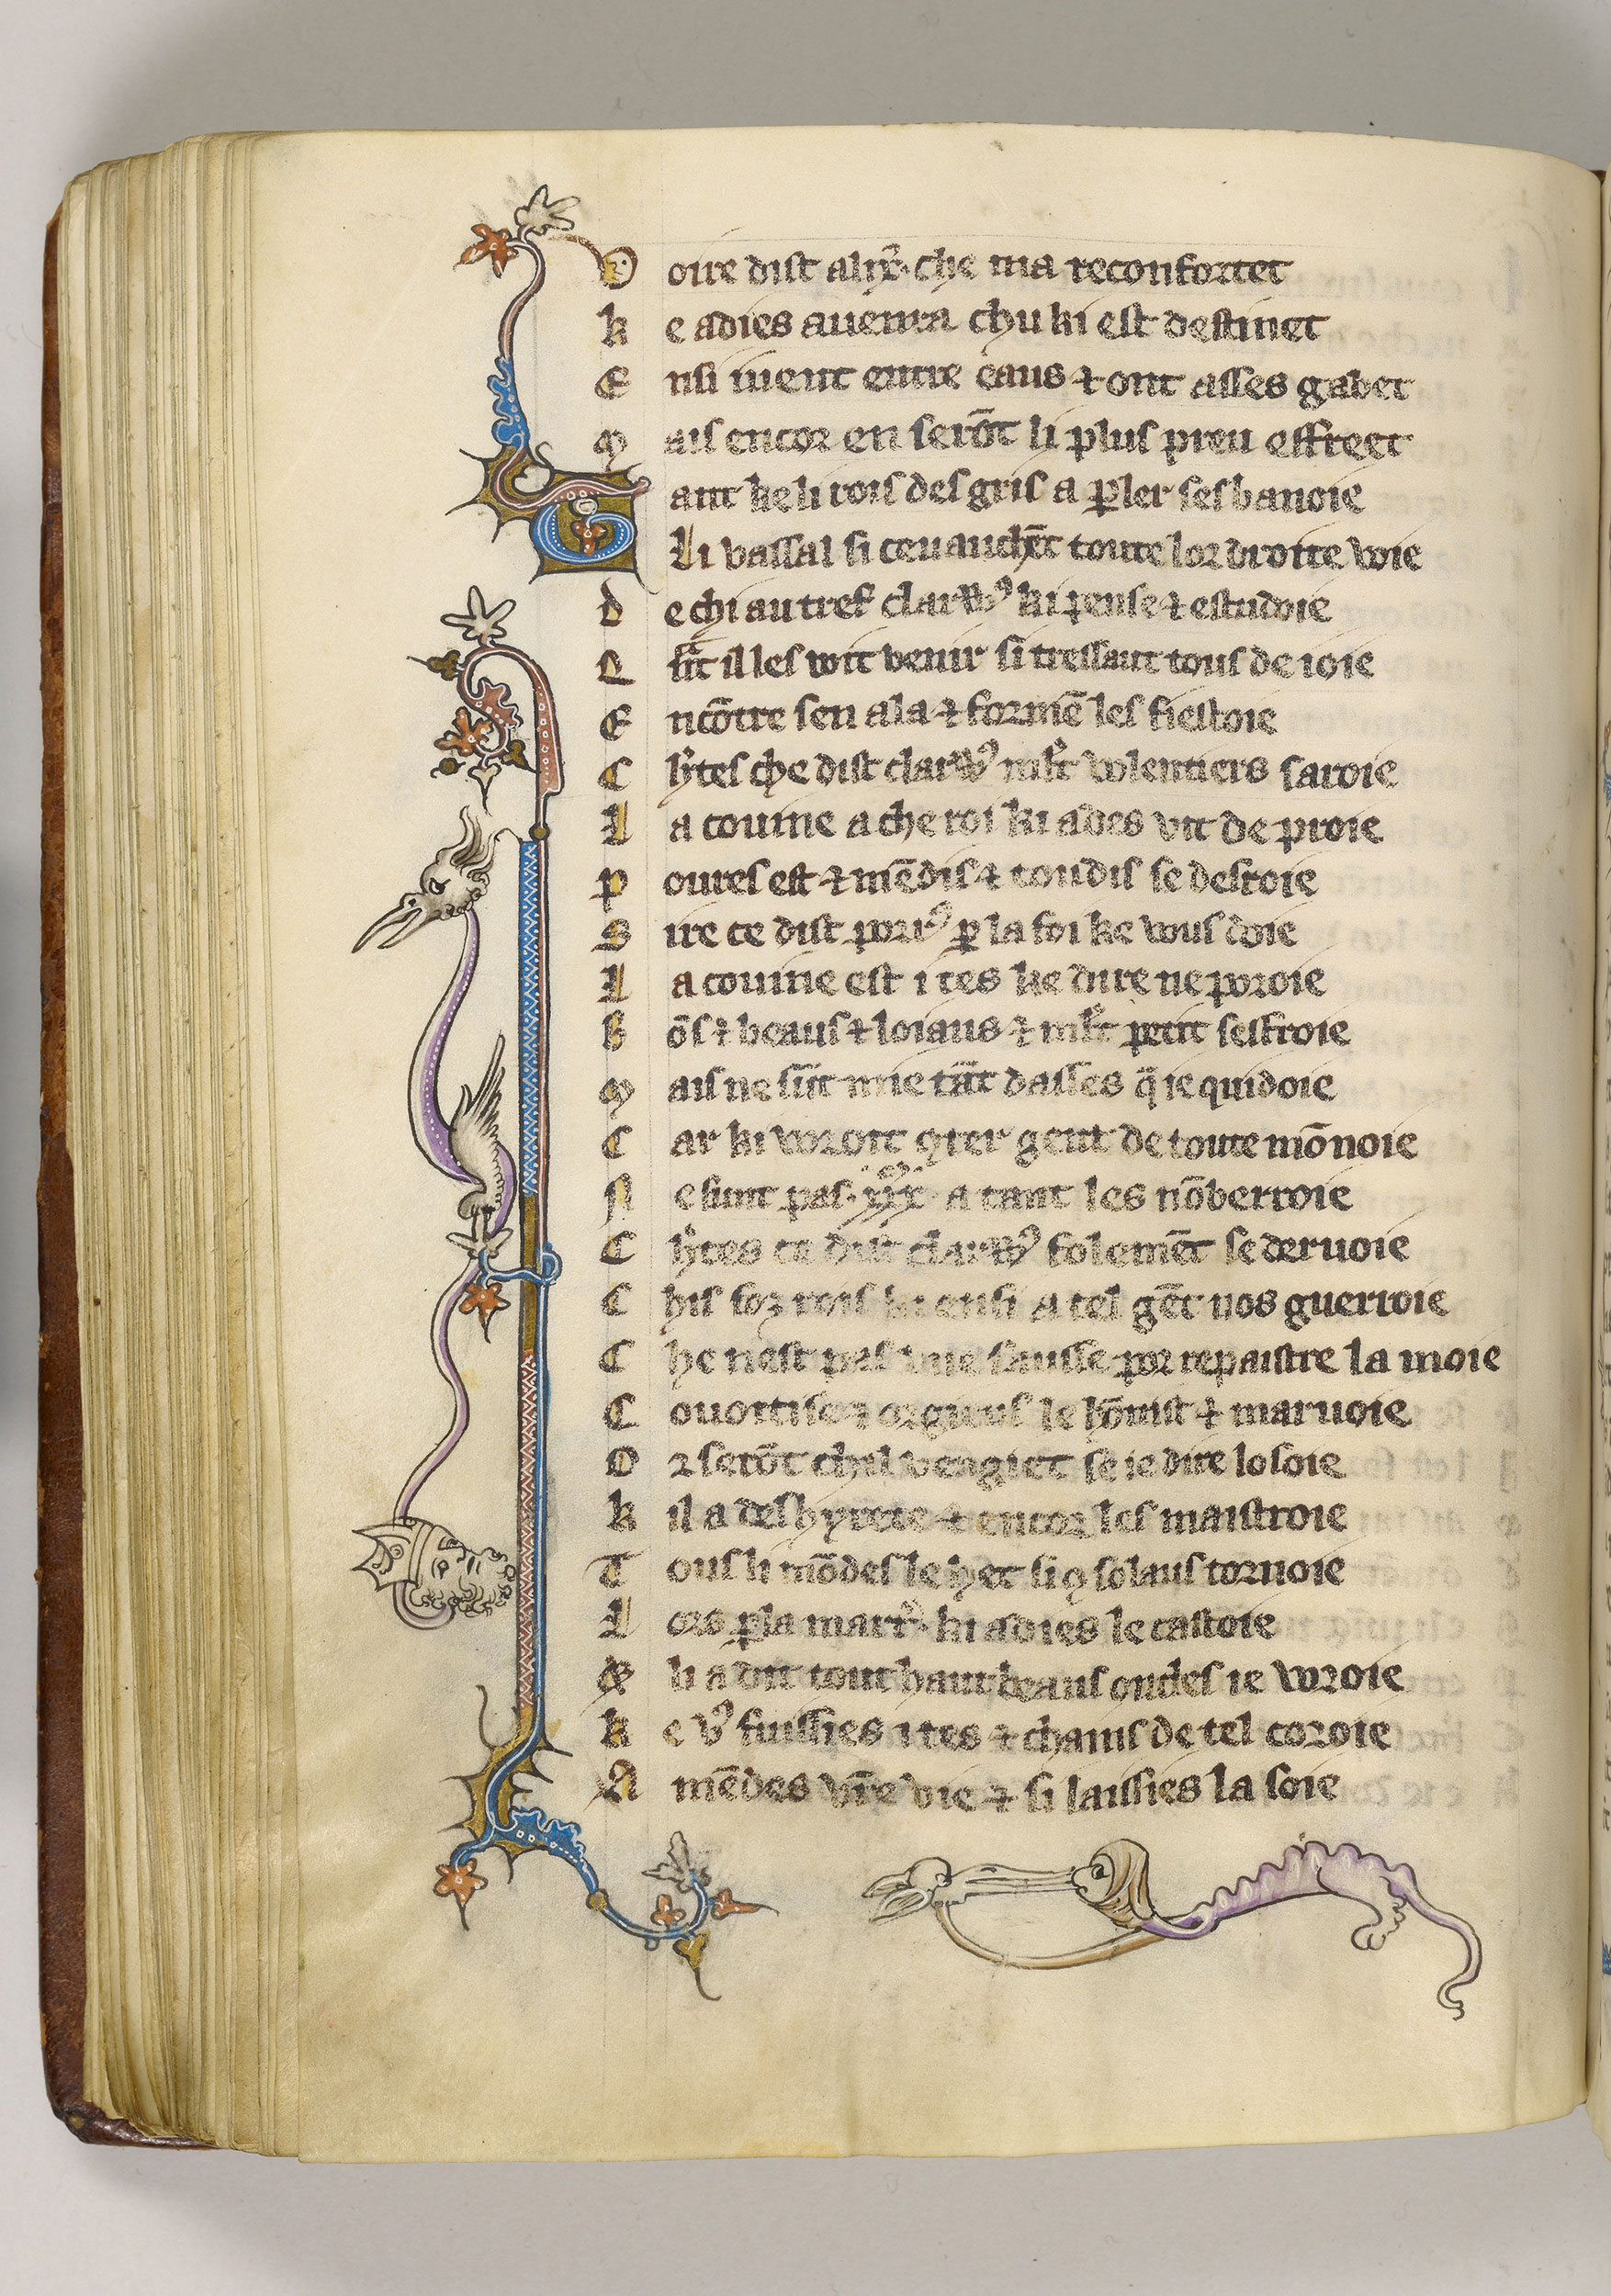 O oire dist alix̃. che ma reconfortet
k e adies auenra chu ki est destinet
E nsi iuent entre eaus ⁊ ont asses gabet
M ais encor en serõt li plus preu effreet
T ant ke li rois des gris a ꝑler sesbanoie
Li vassal si ceuauchẽt toute lor droite voie
D e chi au tref clarꝰ ki pense ⁊ estudoie
Q ãt il les voit venir si tressaut tous de ioie
E ncõtre sen ala ⁊ formẽ les fiestoie
C hr̃tes che dist clarꝰ ml̃t volentiers saroie
L a couine a che roi ki ades vit de proie
P oures est ⁊ mẽdis ⁊ toudis se desroie
S ire ce dist porꝰ ꝑ la foi ke vous doie
L a couine est ites ke dire ne poroie
B õs ⁊ beaus ⁊ loiaus ⁊ ml̃t petit sesfroie
M ais ne sũt mie tãt dasses q̃ ie quidoie
C ar ki voroit ꝯter gent de toute mõnoie
N e sunt pas .xx. a tant les nõberroie
C hr̃tes ce dist clarꝰ folemẽt se deruoie
C his fox rois ki ensi a tel gẽt nos guerroie
C he nest pas une sausse por repaistre la moie
C ouoitise ⁊ orguus le hõnist ⁊ maruoie
O r serõt chil vengiet se ie dire losoie
K il a deshyrete ⁊ encor les maistroie
T ous li mõdes le het si ꝯ solaus tornoie
L ors ꝑla marr̃. ki adies le castoie
E li a dit tout haut beaus oncles ie voroie
K e vꝰ fuissies ites ⁊ chains de tel coroie
A mẽdes vr̃e vie ⁊ si laissies la soie